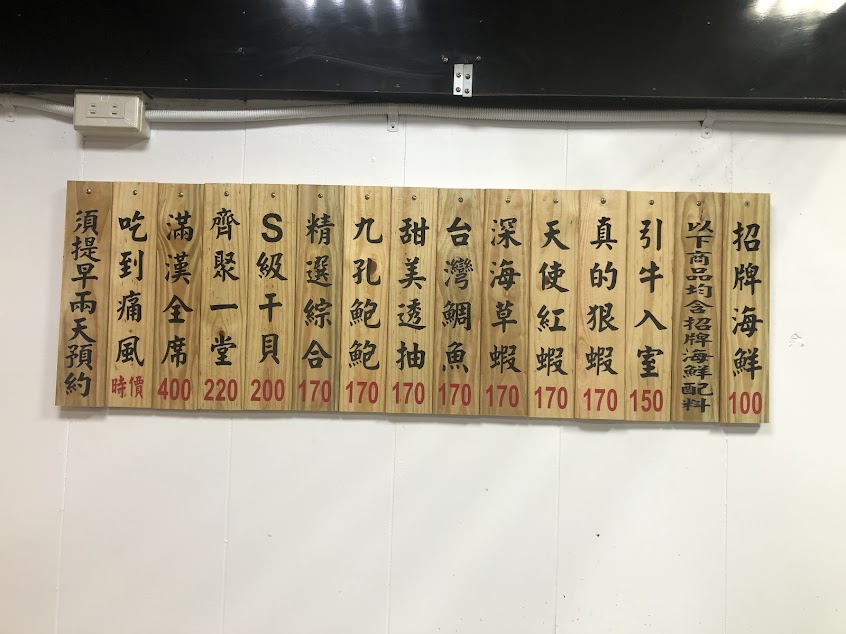 招牌海鮮 100
以下商品均含招牌海鮮配料
引牛入室 150
真的狠蝦 170
天使紅蝦 170
深海草蝦 170
台灣鯛魚 170
甜美透抽 170
九孔鮑鮑 170
精選綜合 170
S級干貝 200
齊聚一堂 220
滿漢全席 400
吃到痛風 時價
須提早兩天預約